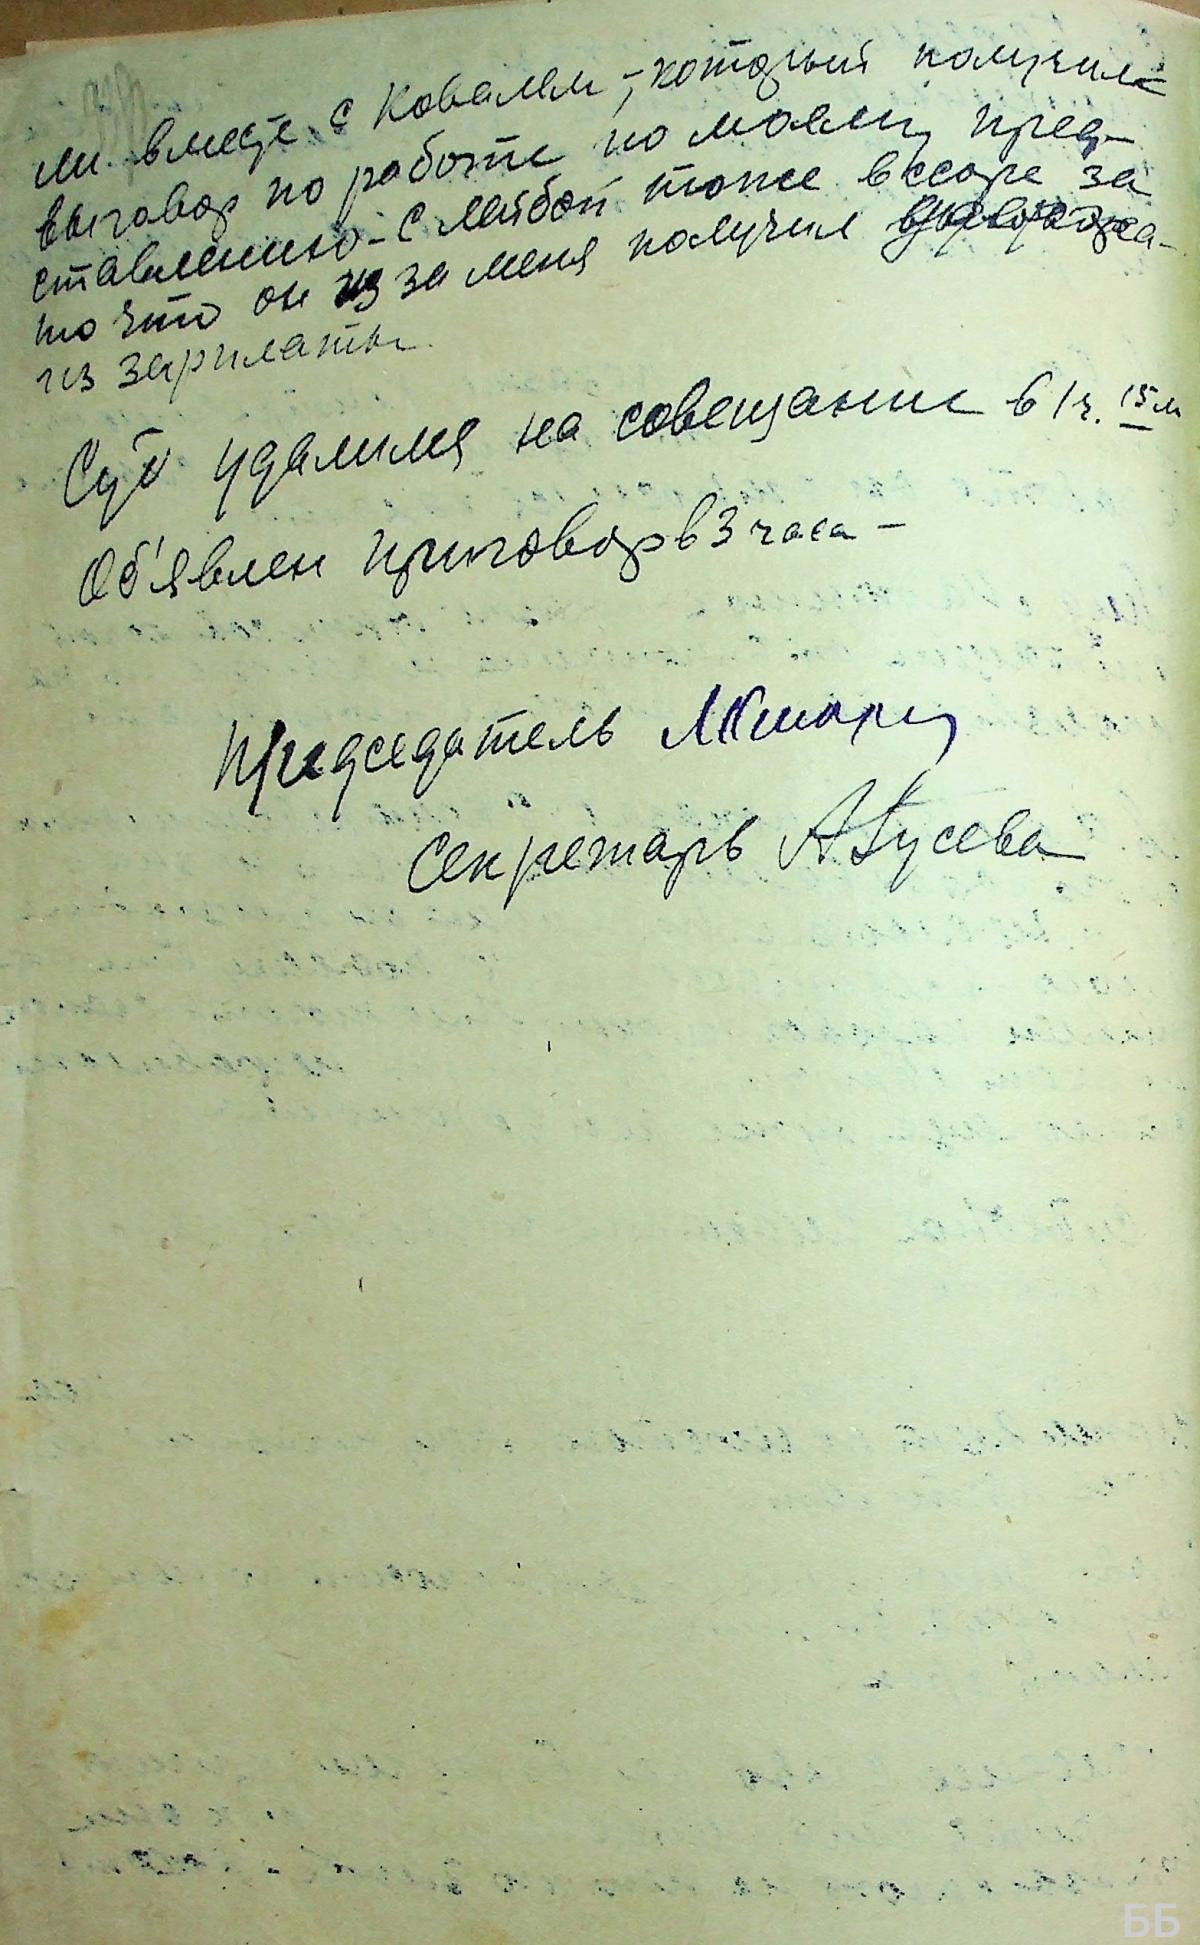 ли вместе с Ковалем, который получил
выговор по работе по моему пред-
ставлению - с Лейбой тоже в ссоре за
то что он из за меня получил
из зарплаты.
Суд удалился на совещание в 1 ч. 15 м
Об'явлен приговор в 3 часа -
Председатель
Секретарь АГусева
ББ